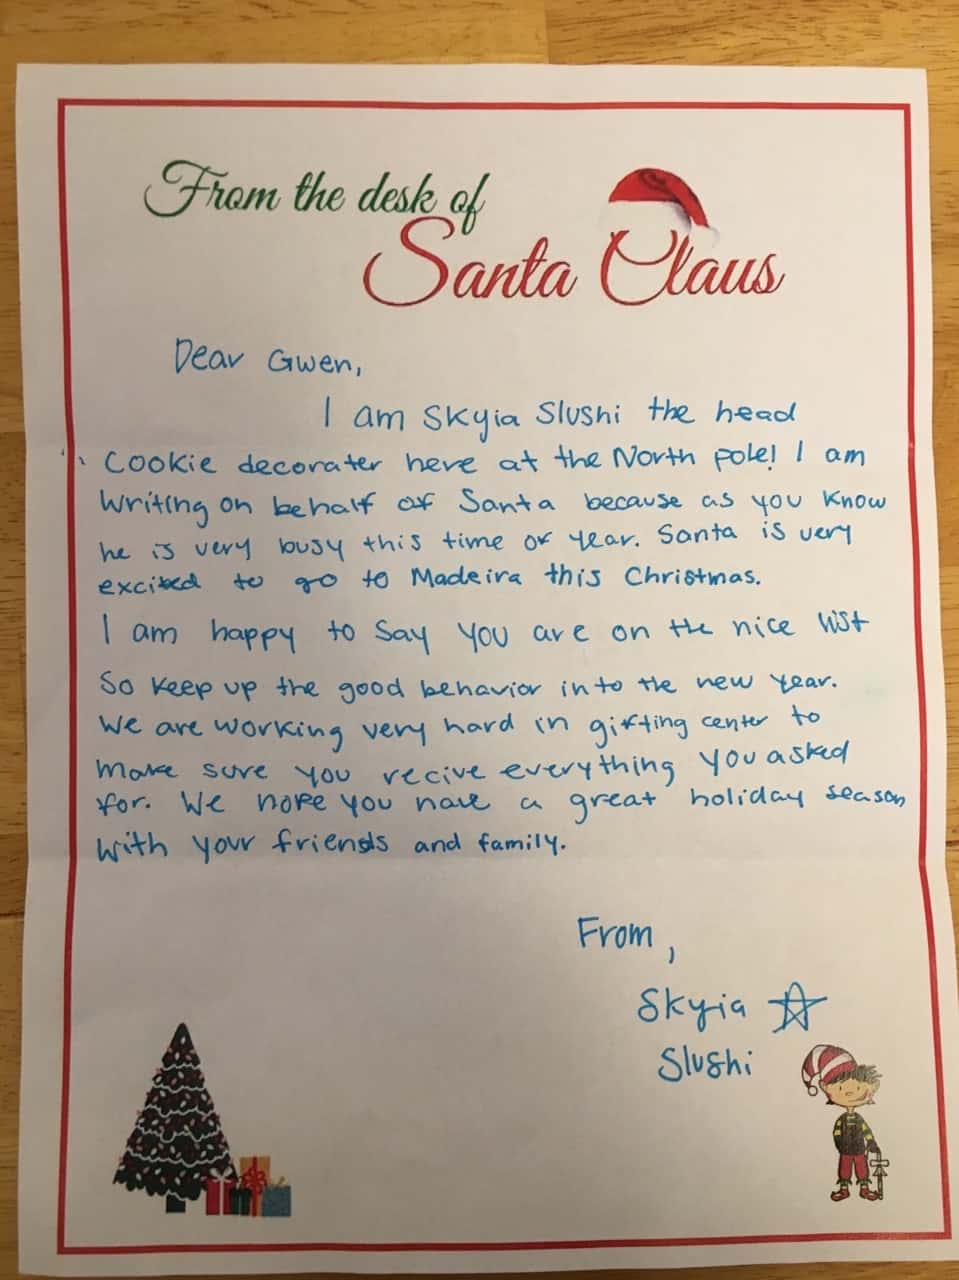 From the desk of
Santa Claus
Dear Gwen,
I am Skyia Slushi the head
Cookie decorater here at the North pole! I am
writing on behalf of Santa because as you know
he is very busy this time of year. Santa is very
excited to go to Madeira this Christmas.
I am happy to say you are on the nice list
So keep up the good behavior into the new year.
We are working very hard in gifting center to
make sure you recive everything you asked
for. We hope you have a great holiday season
with your friends and family.
From,
Skyia
Slushi